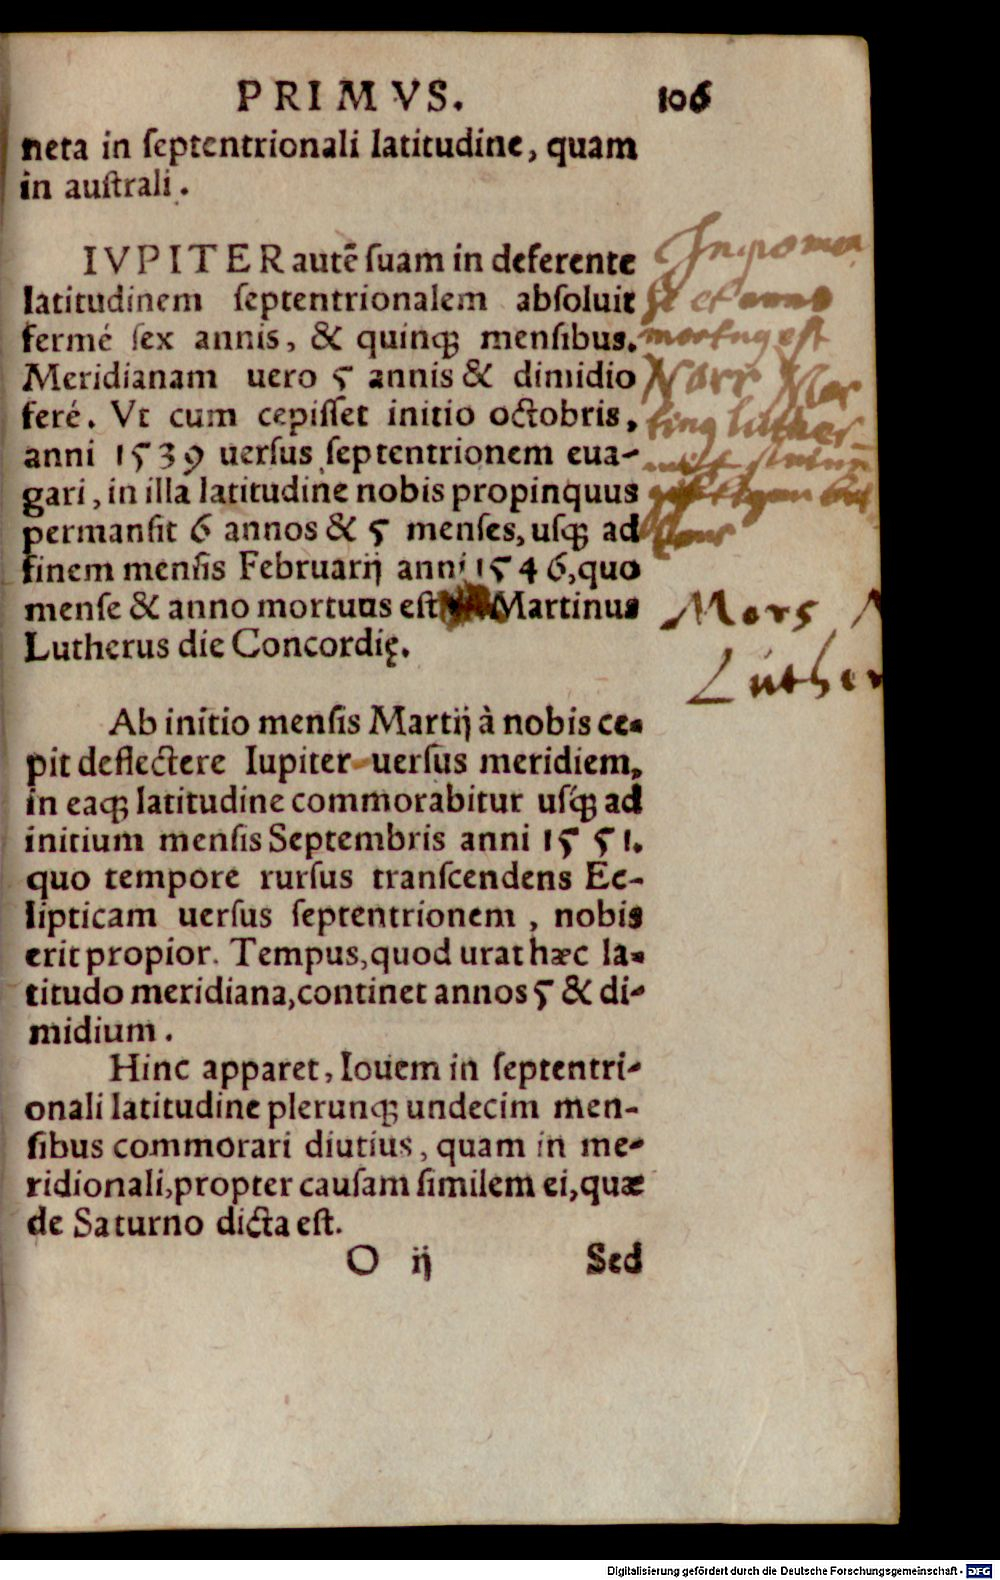 PRIMVS. 106
neta in ſeptentrionali latitudine, quam
in auſtrali.
IVPITER autē ſuam in deferente
latitudinem ſeptentrionalem abſoluit
fermé ſex annis, & quinq; menſibus.
Meridianam uero 5 annis & dimidio
feré. Vt cum cepiſſet initio octobris,
anni 1539 uerſus ſeptentrionem eua-
gari, in illa latitudine nobis propinquus
permanſit 6 annos & 5 menſes, uſq; ad
finem menſis Februarij anni 1546, quo
menſe & anno mortuus eſt Martinus
Lutherus die Concordię.
Ab initio menſis Martij à nobis ce-
pit deflectere Iupiter uerſus meridiem,
in eaq; latitudine commorabitur uſq; ad
initium menſis Septembris anni 1551.
quo tempore rurſus tranſcendens Ec-
lipticam uerſus ſeptentrionem, nobis
erit propior. Tempus, quod urat hæc la-
titudo meridiana, continet annos 5 & di-
midium.
Hinc apparet, Iouem in ſeptentri-
onali latitudine plerunq; undecim men-
ſibus commorari diutius, quam in me-
ridionali, propter cauſam ſimilem ei, quæ
de Saturno dicta eſt.
O ij Sed
et anno
eſt
Narr Mar
luther
Mors M
Luther
Digitalisierung gefördert durch die Deutsche Forschungsgemeinschaft - DFG